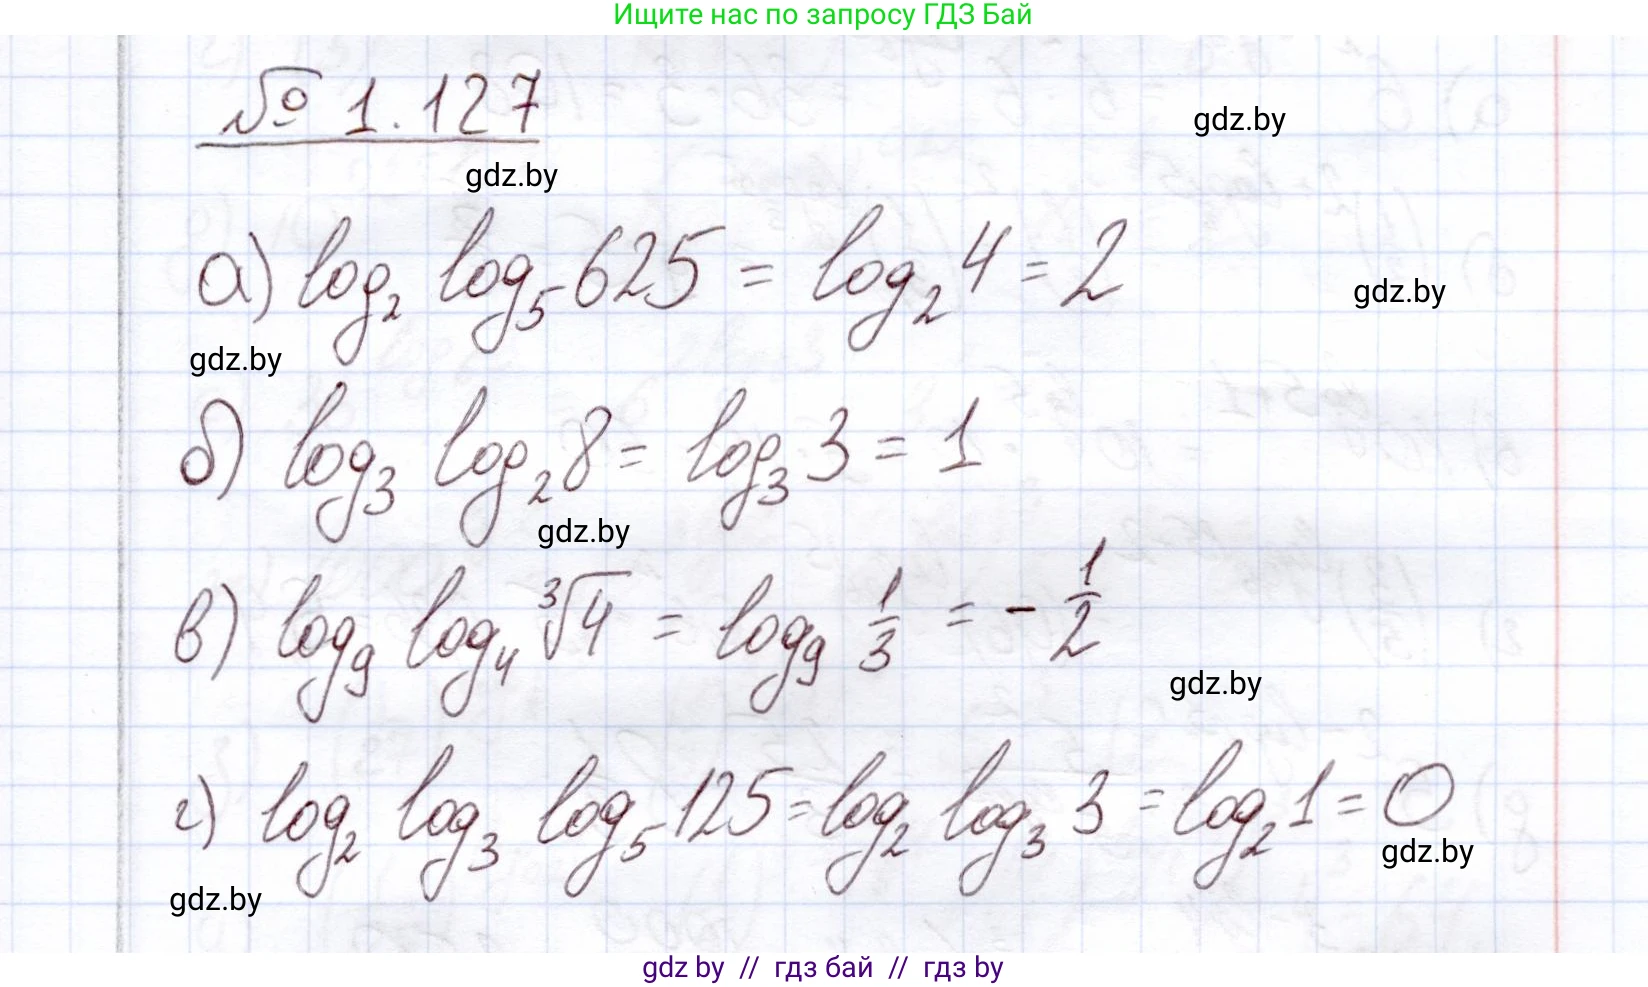 Ищите нас по запросу ГДЗ Бай
№ 1.127
gdz.by
gdz.by
а) log₂ log₅ 625 = log₂ 4 = 2
gdz.by
gdz.by
б) log₃ log₂ 8 = log₃ 3 = 1
gdz.by
в) log₉ log₄ ∛4 = log₉ 1/3 = - 1/2
gdz.by
г) log₂ log₃ log₅ 125 = log₂ log₃ 3 = log₂ 1 = 0
gdz.by
gdz.by
gdz by // гдз бай // гдз by